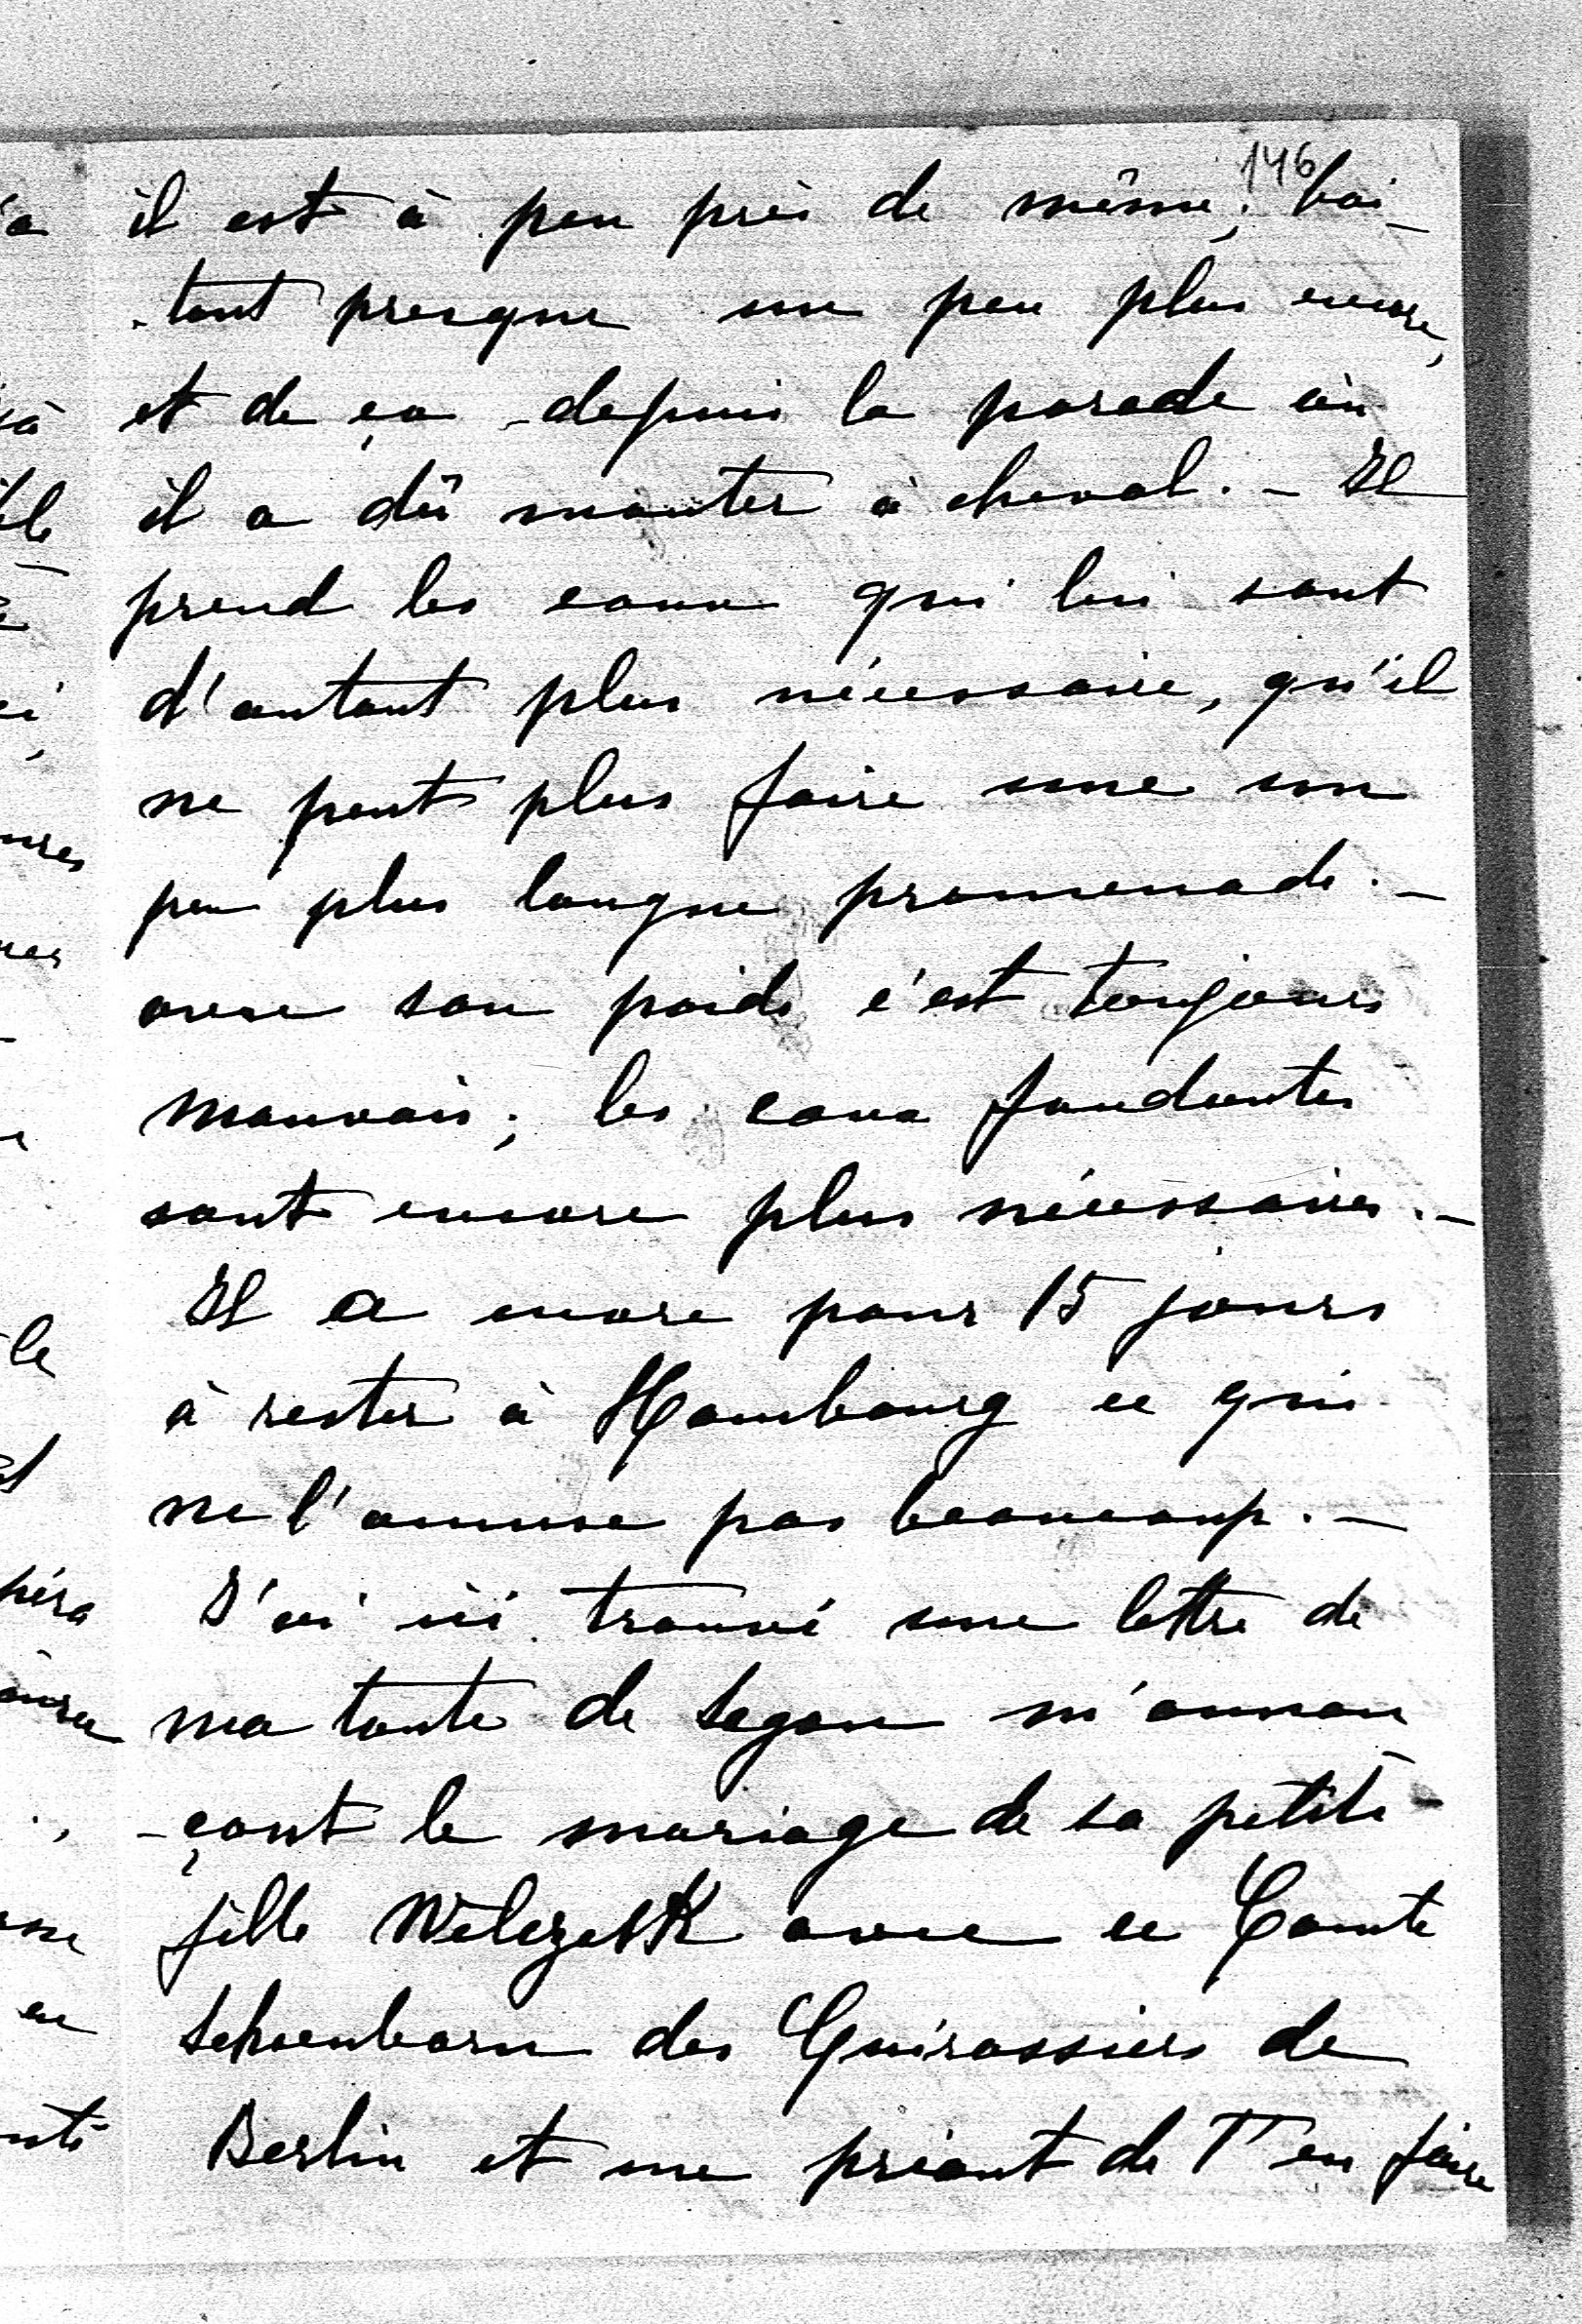 146
il est à peu près de même, boi-
-tant presque un peu plus encore,
et de ça depuis la parade où
il a dû monter à cheval. - Il
prend les eaux qui lui sont
d'autant plus nécessaire, qu'il
ne peut plus faire une un
peu plus longue promenade. -
avec son poids c'est toujours
mauvais; les eaux fondantes
sont encore plus nécessaires. -
Il a encore pour 15 jours
à rester à Hombourg ce qui
ne l'amuse pas beaucoup. -
J'ai ici trouvé une lettre de
ma tante de Sagan m'annon-
-çant le mariage de sa petite-
fille avec ce Comte
Schoenborn des Cuirassiers de
Berlin et me priant de T'en faire